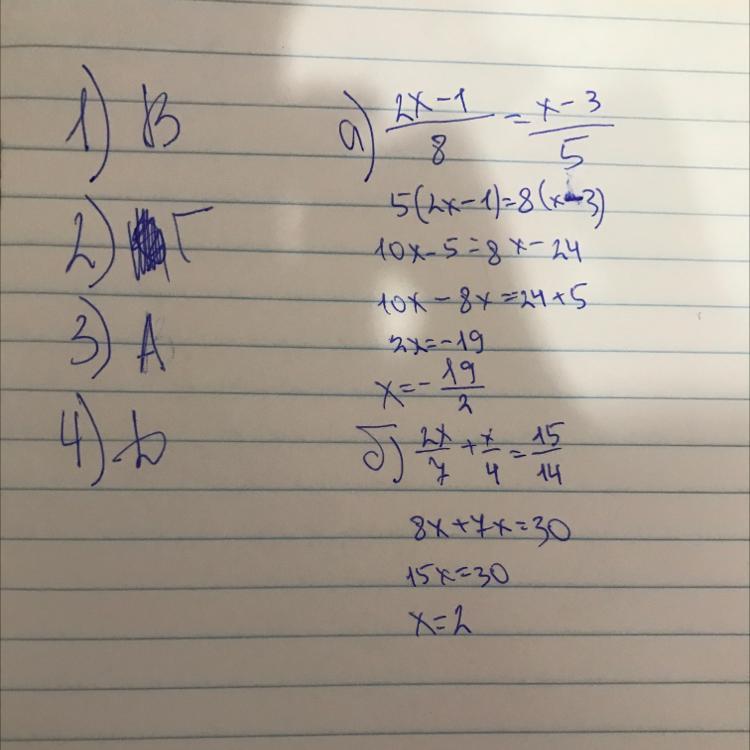 1) В
2) Г
3) А
4) Б
а) (2x-1)/8 = (x-3)/5
5(2x-1)=8(x-3)
10x-5=8x-24
10x-8x=24+5
2x=-19
x=-19/2
б) 2x/7 + x/4 = 15/14
8x+7x=30
15x=30
x=2